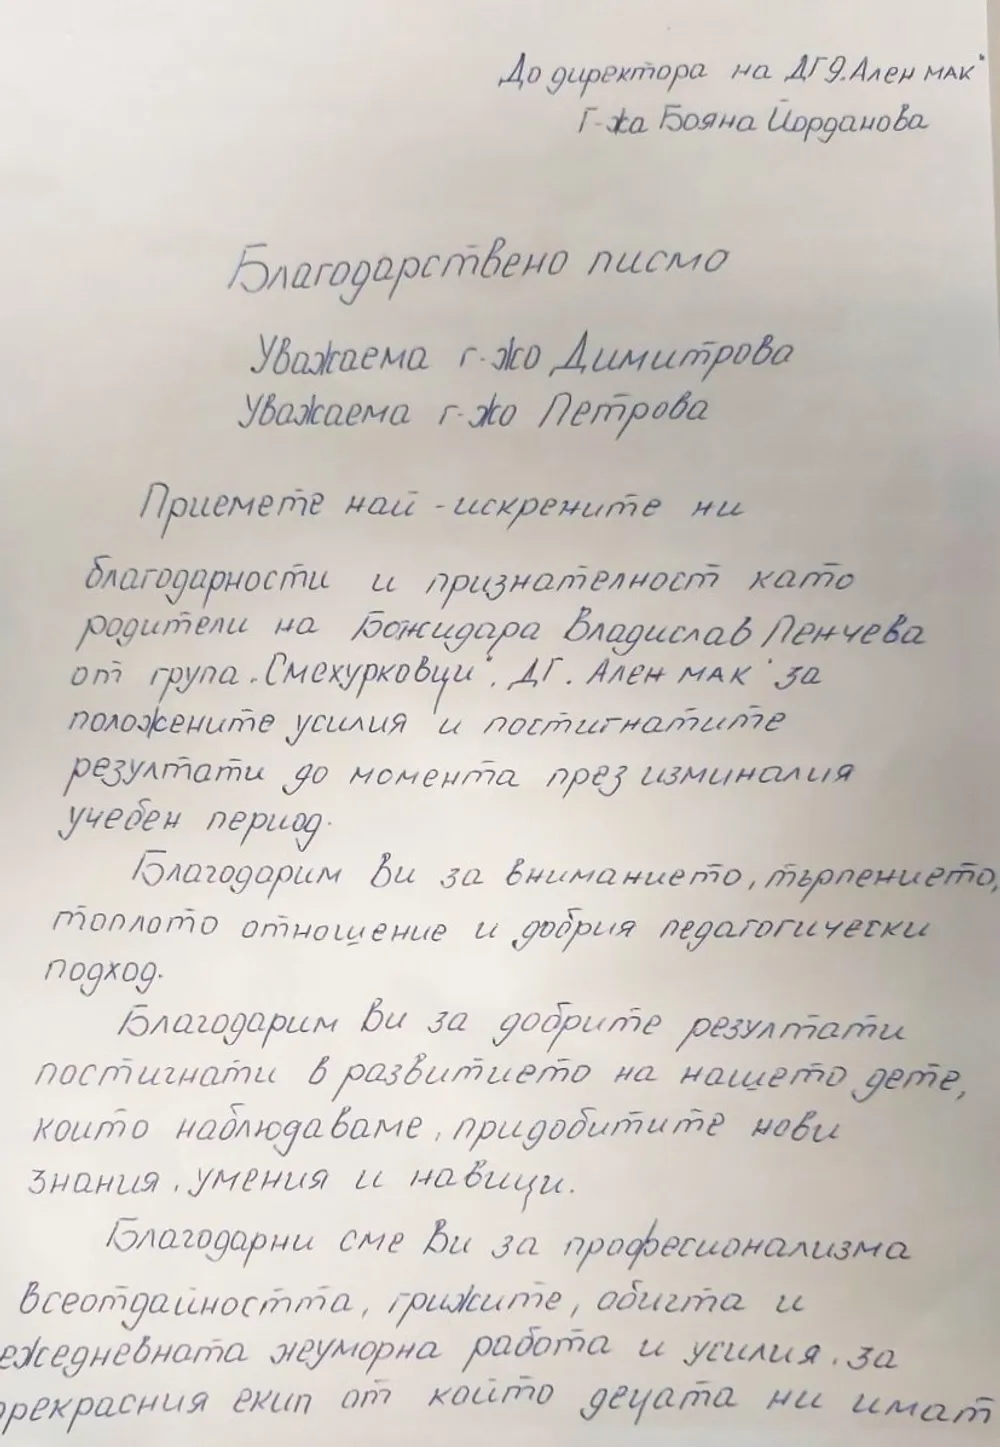 До директора на ДГ „Ален мак"
Г-жа Бояна Йорданова
Благодарствено писмо
Уважаема г-жо Димитрова
Уважаема г-жо Петрова
Приемете най-искрените ни
благодарности и признателност като
родители на Божидара Владислав Пенчева
от група „Смехурковци", ДГ „Ален мак" за
положените усилия и постигнатите
резултати до момента през изминалия
учебен период.
Благодарим Ви за вниманието, търпението,
топлото отношение и добрия педагогически
подход.
Благодарим Ви за добрите резултати
постигнати в развитието на нашето дете,
които наблюдаваме, придобитите нови
знания, умения и навици.
Благодарни сме Ви за професионализма
всеотдайността, грижите, обичта и
ежедневната неуморна работа и усилия, за
прекрасния екип от който децата ни имат